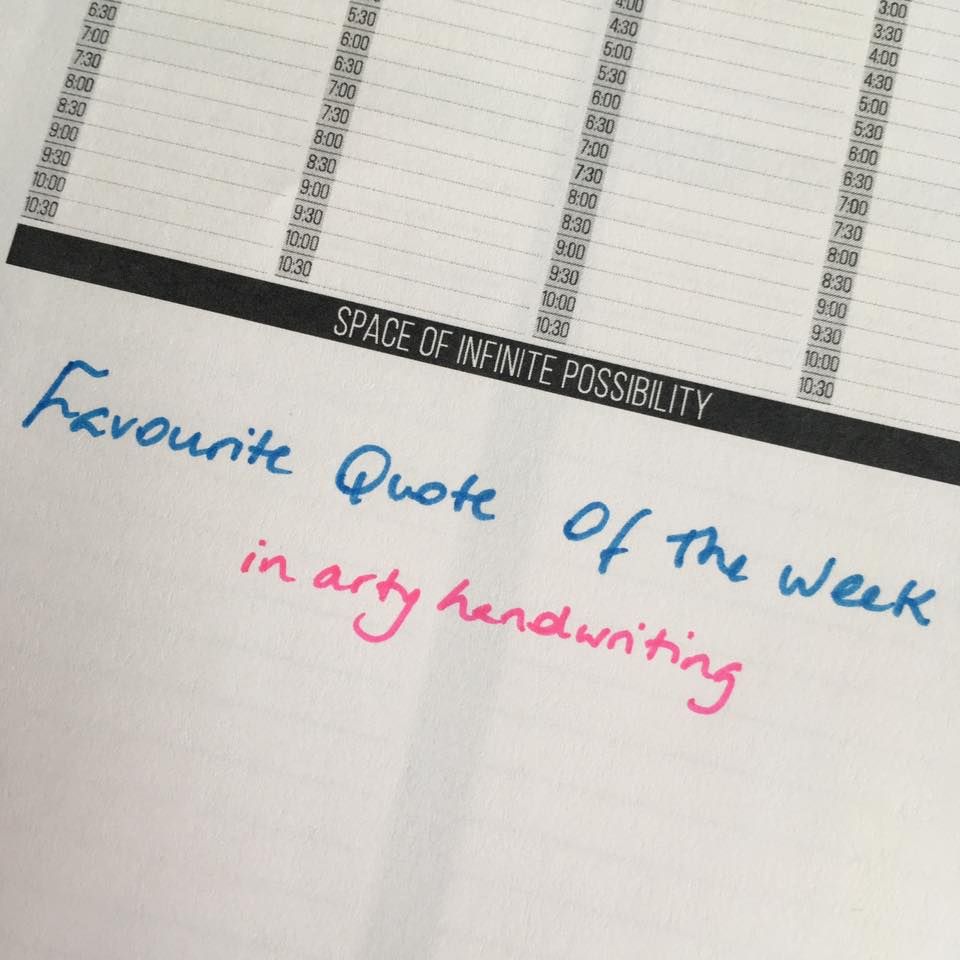 6:30
7:00
7:30
8:00
8:30
9:00
9:30
10:00
10:30
5:30
6:00
6:30
7:00
7:30
8:00
8:30
9:00
9:30
10:00
10:30
4:00
4:30
5:00
5:30
6:00
6:30
7:00
7:30
8:00
8:30
9:00
9:30
10:00
10:30
3:00
3:30
4:00
4:30
5:00
5:30
6:00
6:30
7:00
7:30
8:00
8:30
9:00
9:30
10:00
10:30
SPACE OF INFINITE POSSIBILITY
Favourite Quote Of The Week
in arty handwriting